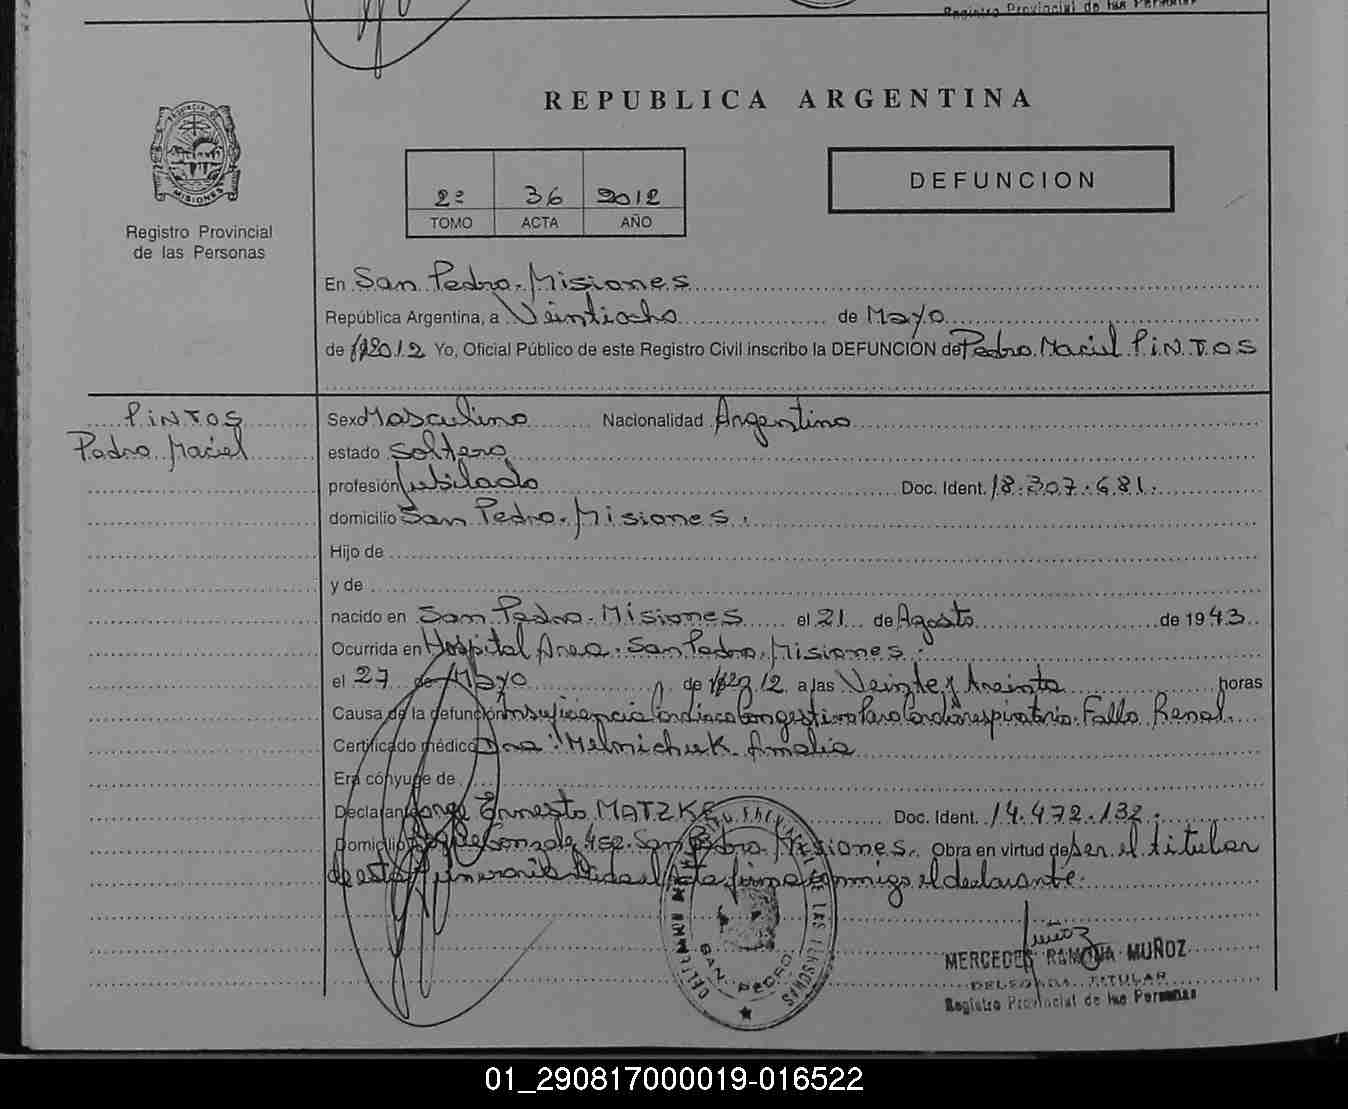 Registro Provincial de las Personas
REPUBLICA ARGENTINA
PROVINCIA DE
MISIONES
Registro Provincial
de las Personas
2º 36 2012
TOMO ACTA AÑO
DEFUNCION
En San Pedro. Misiones
República Argentina, a Veintiocho de Mayo
de 2012 Yo, Oficial Público de este Registro Civil inscribo la DEFUNCION de Pedro Maciel PiNTOS
PiNTOS
Pedro Maciel
Sexo Masculino Nacionalidad Argentino
estado Soltero
profesión Jubilado Doc. Ident. 18.307.681.
domicilio San Pedro. Misiones.
Hijo de
y de
nacido en San Pedro. Misiones el 21 de Agosto de 1943
Ocurrida en Hospital Area. San Pedro. Misiones.
el 27 de Mayo de 2012 a las Veinte y treinta horas
Causa de la defunción Insuficiencia Cardiaca Congestiva Paro Cardiorespiratorio. Fallo Renal.
Certificado médico Dra. Melnichuk Amalia
Era cónyuge de
Declarante Jorge Ernesto MATZKE Doc. Ident. 14.472.132.
Domicilio 452. San Pedro. Misiones. Obra en virtud de ser el titular
de esta firma conmigo el declarante.
SAN PEDRO
MERCEDES RAMONA MUÑOZ
DELEGADA TITULAR
Registro Provincial de las Personas
01_290817000019-016522